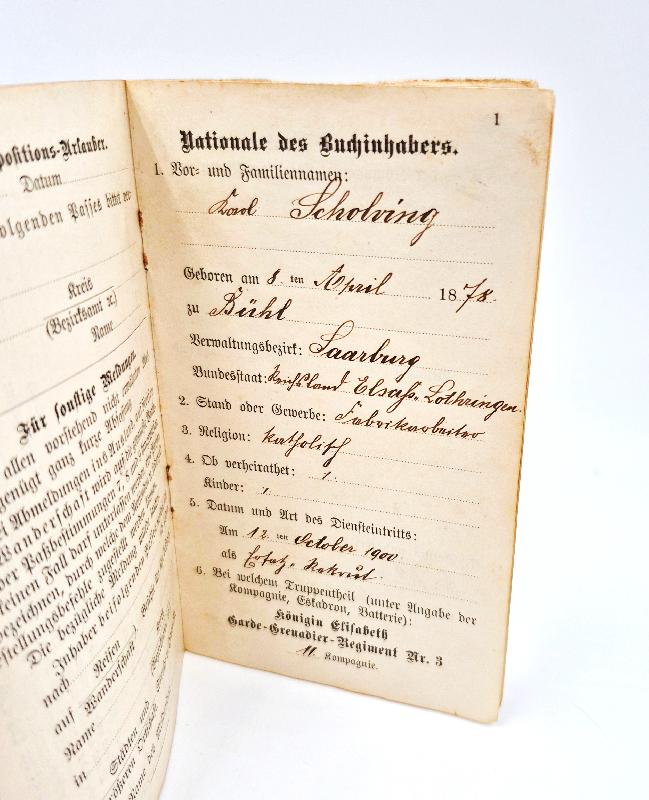 positions-Urlauber.
Datum
folgenden Passes bittet
Kreis
(Bezirksamt ꝛc.)
Name
Für sonstige Meldungen.
allen vorstehend nicht
genügt ganz kurze
Abmeldungen ins Ausland,
Wanderschaft wird auf die
der Paßbestimmungen 7, 8
einen Fall darf unterlassen
bezeichnen, durch welche
stellungsbefehls zugehen
Die bezügliche Meldung
Inhaber beifolgenden
nach Reisen
auf Wanderschaft
Name
in Städten und
größeren Orten
Name des
1
Nationale des Buchinhabers.
1. Vor- und Familiennamen:
Karl Scholving
Geboren am 8 ten April 1878.
zu Bühl
Verwaltungsbezirk: Saarburg
Bundesstaat: Reichsland Elsaß-Lothringen.
2. Stand oder Gewerbe: Fabrikarbeiter
3. Religion: katholisch
4. Ob verheirathet: /.
Kinder: /.
5. Datum und Art des Diensteintritts:
Am 12 ten October 1900
als Ersatz-Rekrut
6. Bei welchem Truppentheil (unter Angabe der
Kompagnie, Eskadron, Batterie):
Königin Elisabeth
Garde-Grenadier-Regiment Nr. 3
11 Kompagnie.